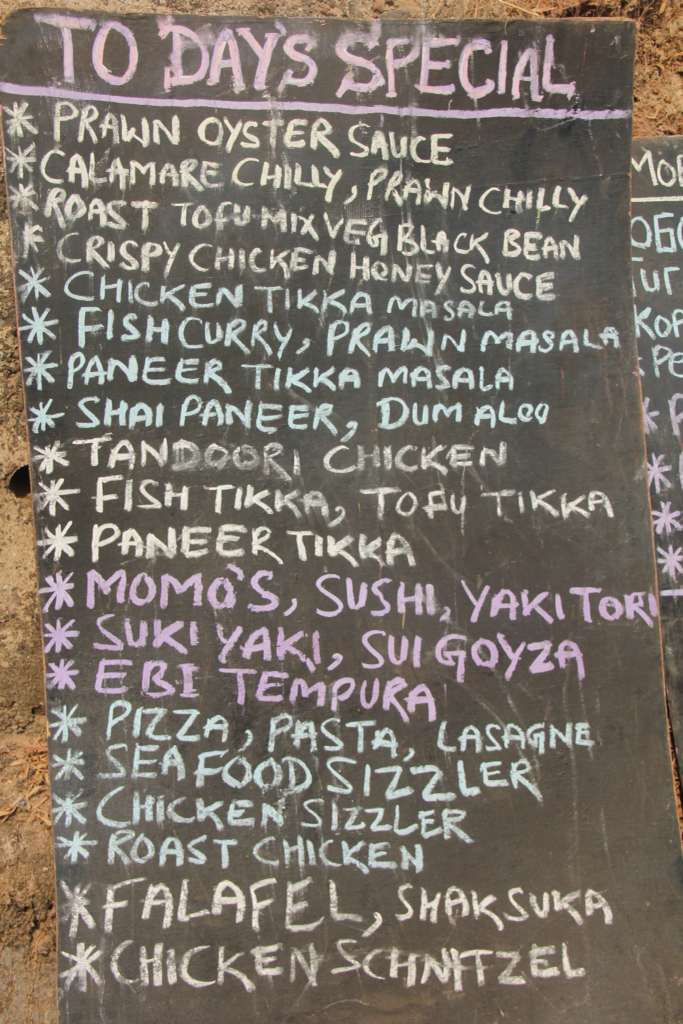 TO DAY'S SPECIAL
* PRAWN OYSTER SAUCE
* CALAMARE CHILLY, PRAWN CHILLY
* ROAST TOFU MIX VEG BLACK BEAN
* CRISPY CHICKEN HONEY SAUCE
* CHICKEN TIKKA MASALA
* FISH CURRY, PRAWN MASALA
* PANEER TIKKA MASALA
* SHAI PANEER, DUM ALOO
* TANDOORI CHICKEN
* FISH TIKKA, TOFU TIKKA
* PANEER TIKKA
* MOMO'S, SUSHI, YAKI TORI
* SUKI YAKI, SUI GOYZA
* EBI TEMPURA
* PIZZA, PASTA, LASAGNE
* SEA FOOD SIZZLER
* CHICKEN SIZZLER
* ROAST CHICKEN
* FALAFEL, SHAKSUKA
* CHICKEN SCHNITZEL